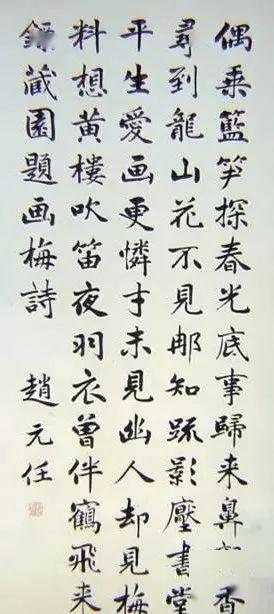 偶乘籃笋探春光底事歸来鼻香
尋到龍山花不見那知踈影壓書堂
平生愛画更憐才未見幽人却見梅
料想黄樓吹笛夜羽衣曾伴鶴飛来
藏園題画梅詩 趙元任